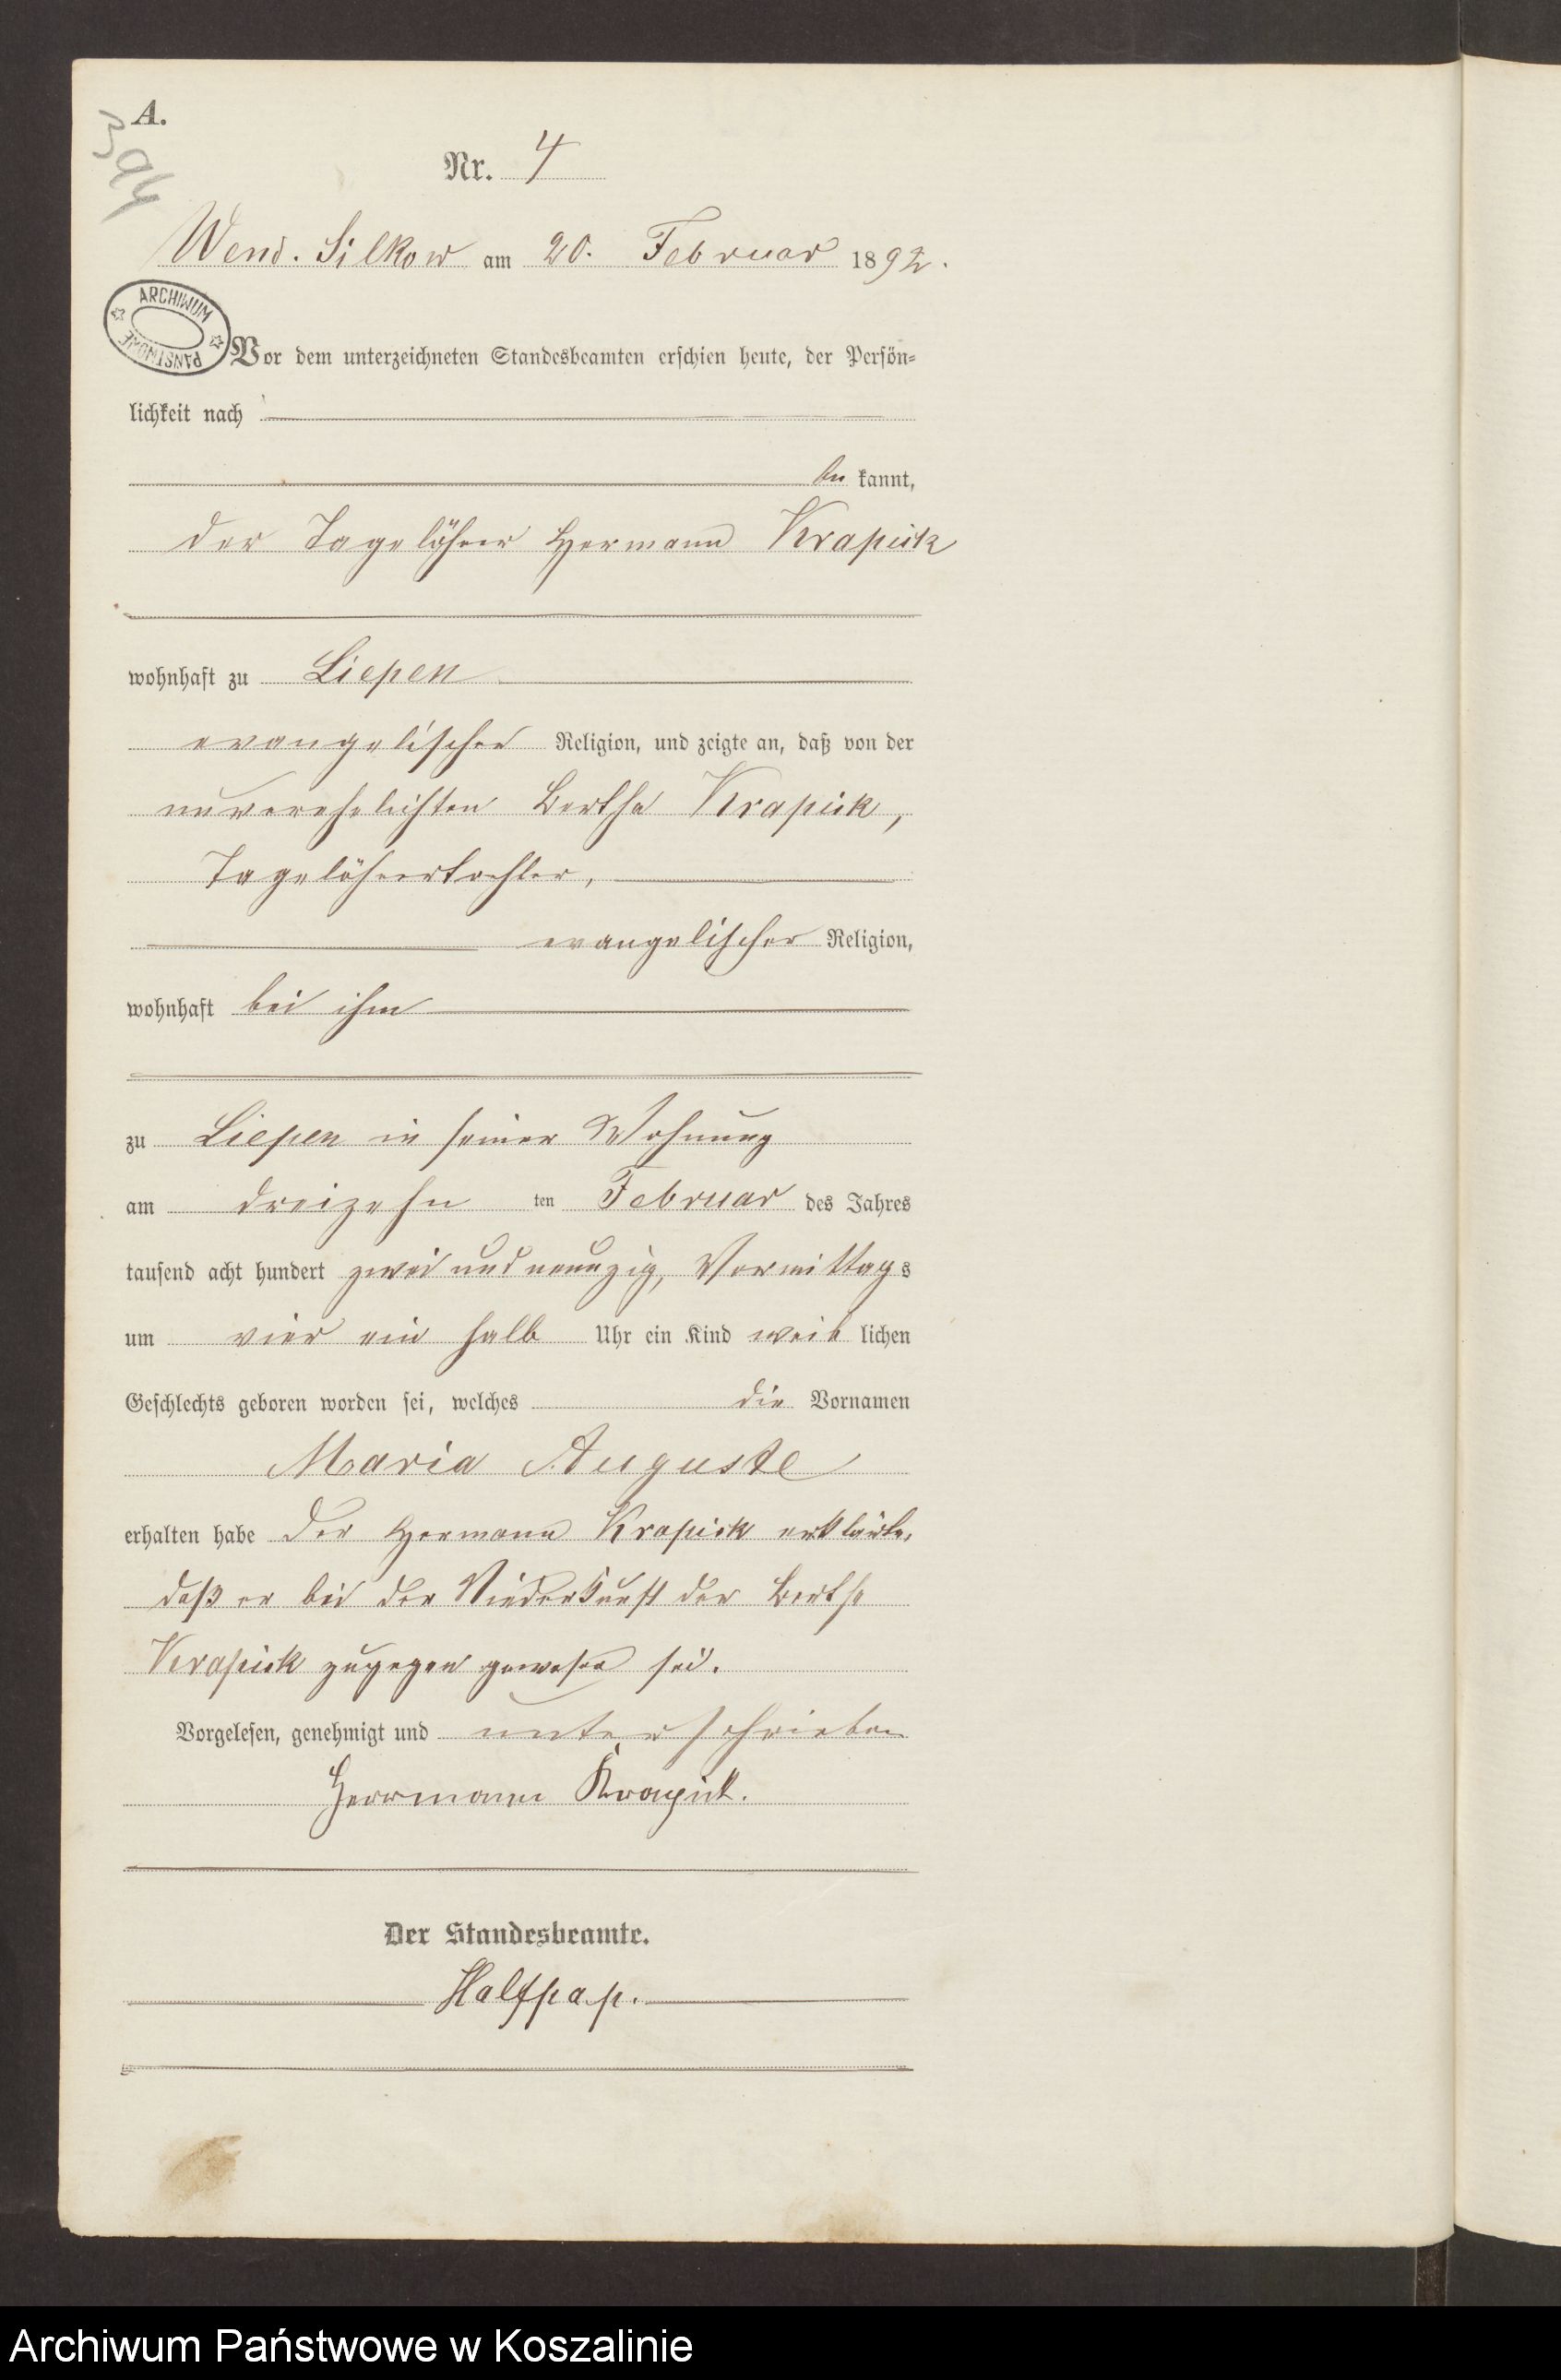 A.
394
Nr. 4
Wend. Silkow am 20. Februar 1892.
ARCHIWUM PAŃSTWOWE
Vor dem unterzeichneten Standesbeamten erschien heute, der Persön-
lichkeit nach
be kannt,
der Tagelöhner Hermann Krapick
wohnhaft zu Liepen
evangelischer Religion, und zeigte an, daß von der
unverehelichten Bertha Krapick,
Tagelöhnertochter,
evangelischer Religion,
wohnhaft bei ihm
zu Liepen in seiner Wohnung
am dreizehn ten Februar des Jahres
tausend acht hundert zwei und neunzig, Vormittags
um vier ein halb Uhr ein Kind weib lichen
Geschlechts geboren worden sei, welches die Vornamen
Maria Auguste
erhalten habe Der Hermann Krapick erklärte,
daß er bei der Niederkunft der Bertha
Krapick zugegen gewesen sei.
Vorgelesen, genehmigt und unterschrieben
Herrmann Krapick.
Der Standesbeamte.
Halfpap.
Archiwum Państwowe w Koszalinie